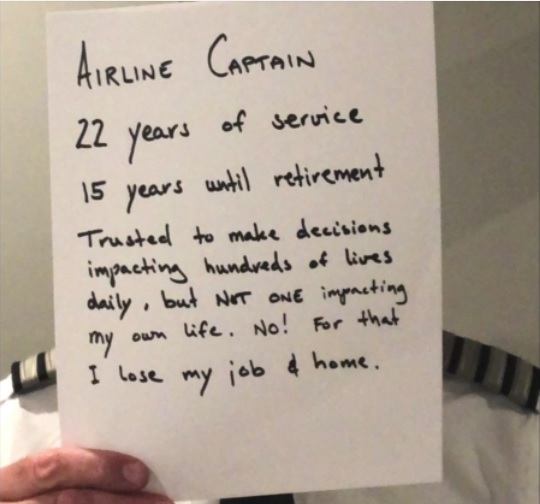 AIRLINE CAPTAIN
22 years of service
15 years until retirement
Trusted to make decisions
impacting hundreds of lives
daily, but NOT ONE impacting
my own life. No! For that
I lose my job & home.